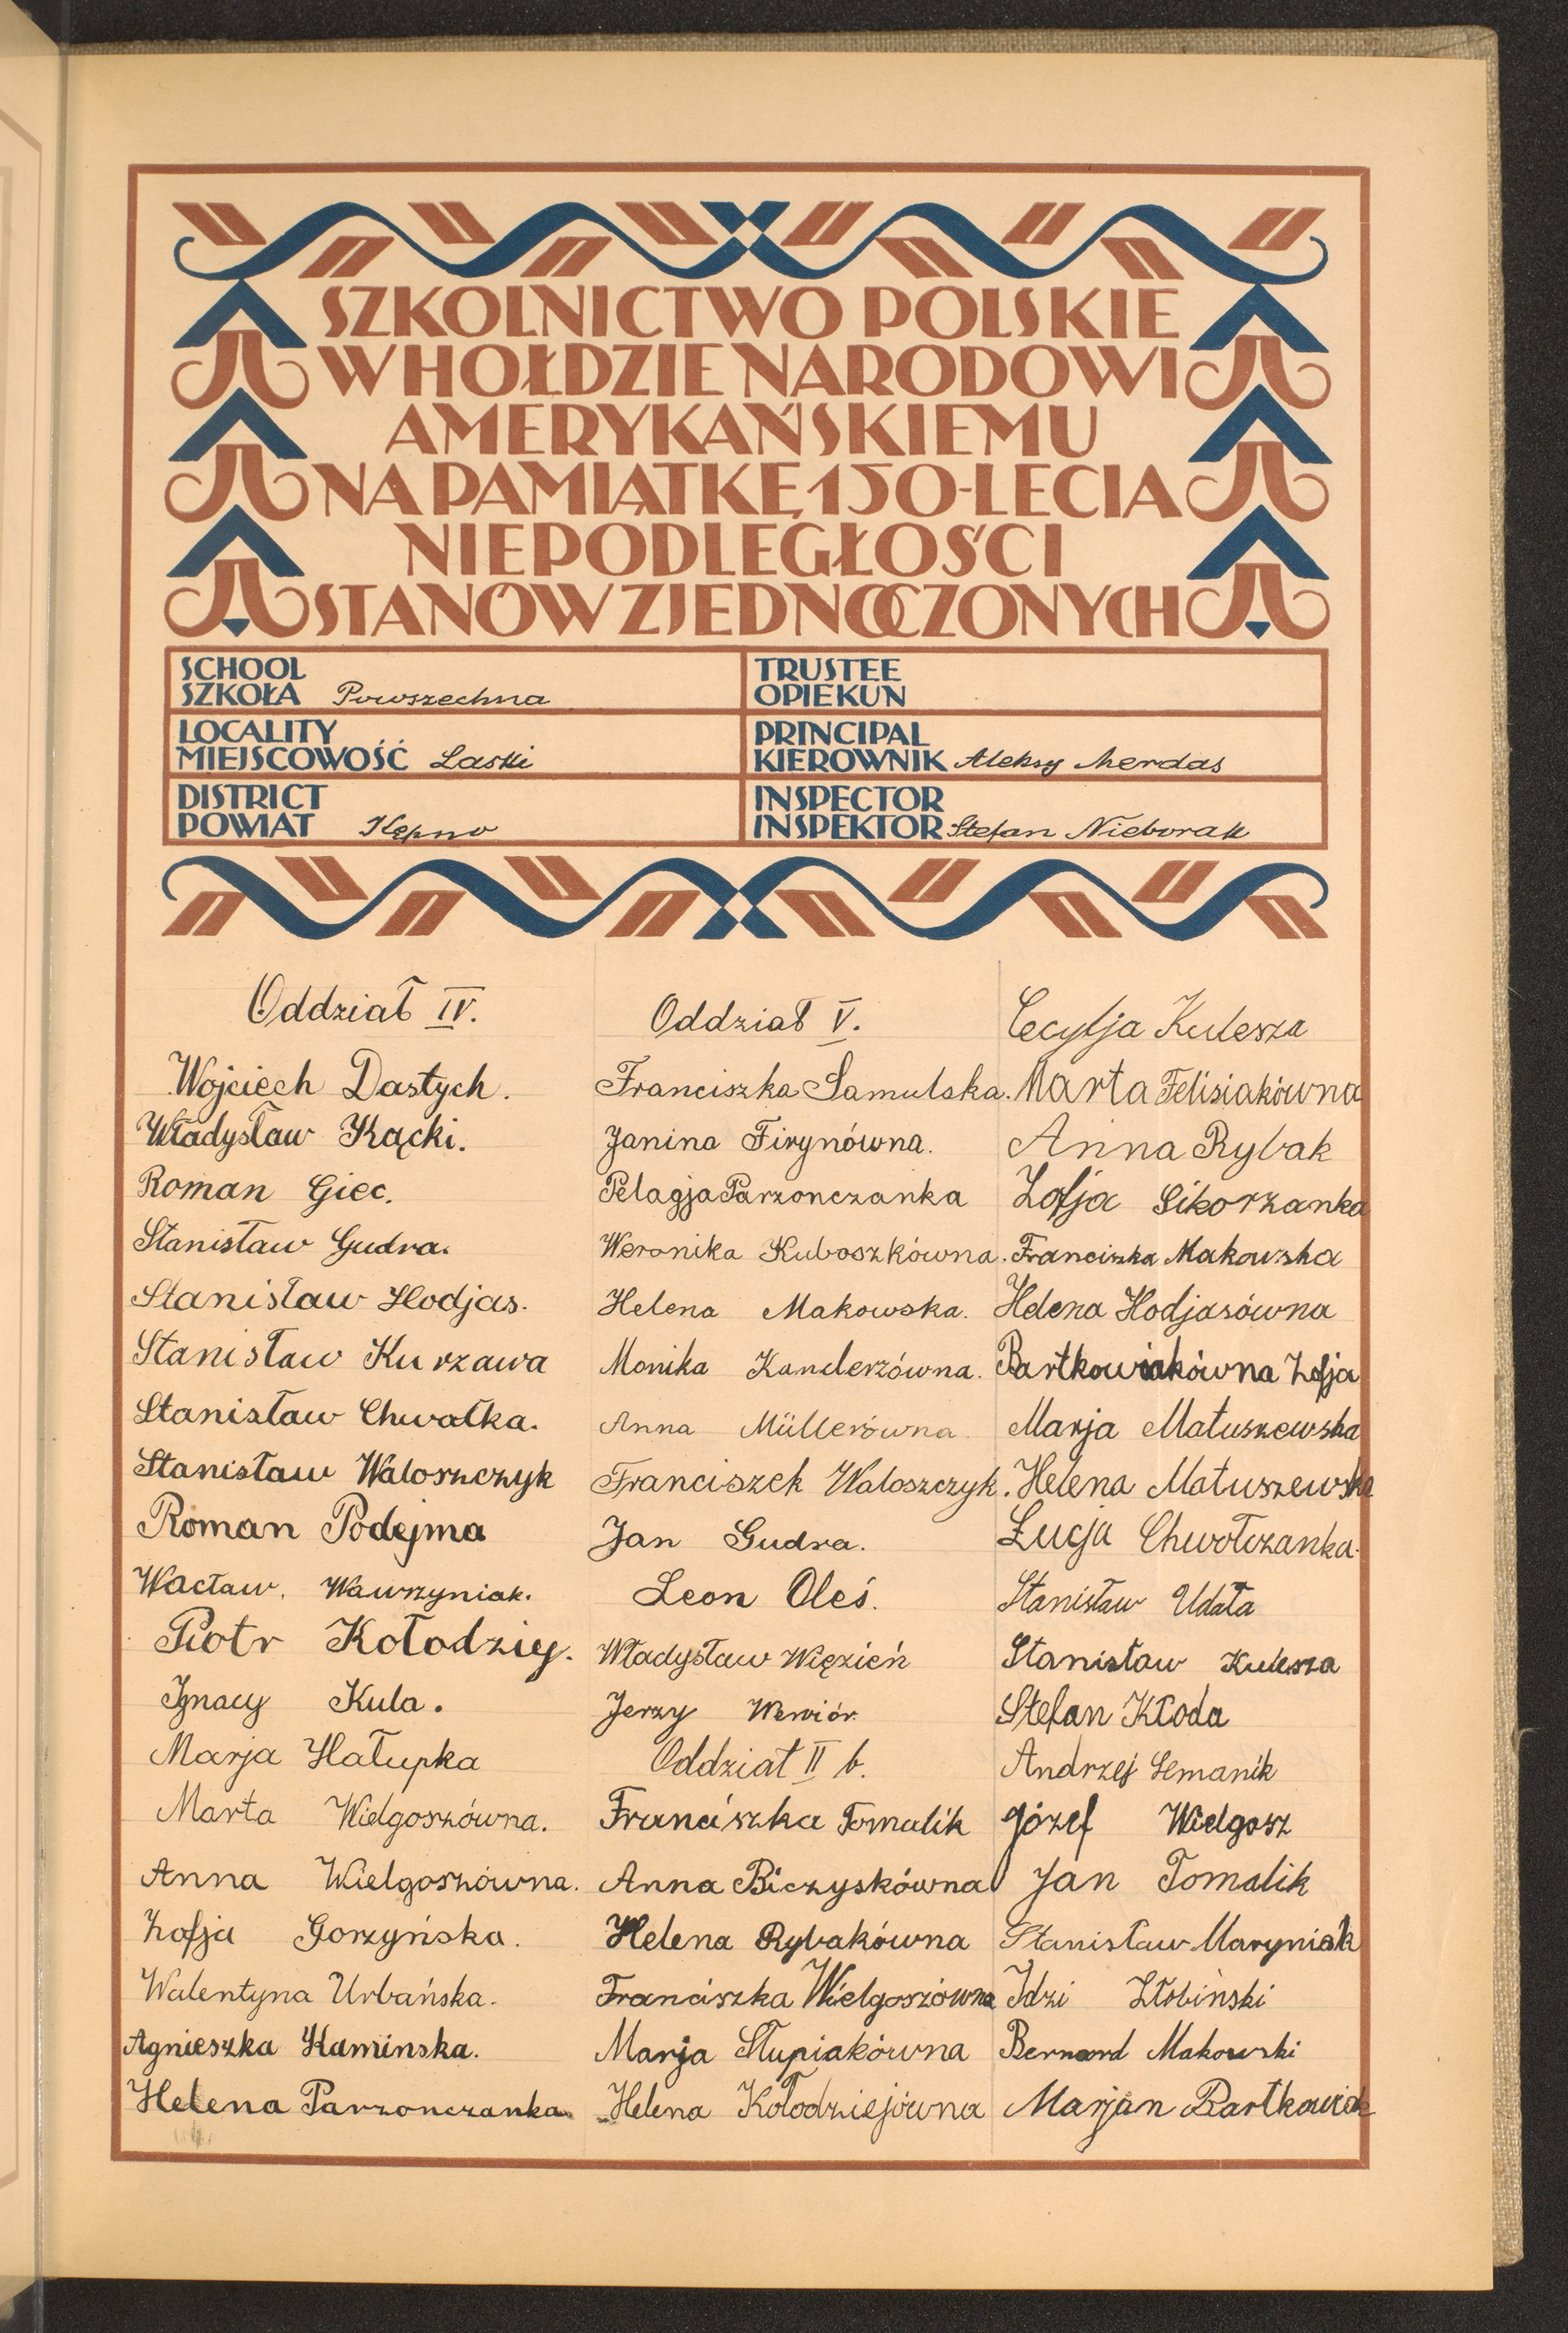 SZKOLNICTWO POLSKIE
W HOŁDZIE NARODOWI
AMERYKAŃSKIEMU
NA PAMIĄTKĘ 150-LECIA
NIEPODLEGŁOŚCI
STANÓW ZJEDNOCZONYCH
SCHOOL
SZKOŁA Powszechna
LOCALITY
MIEJSCOWOŚĆ Laski
DISTRICT
POWIAT Kępno
TRUSTEE
OPIEKUN
PRINCIPAL
KIEROWNIK Aleksy Merdas
INSPECTOR
INSPEKTOR Stefan Nieborak
Oddział IV.
Wojciech Dastych.
Władysław Kącki.
Roman Giec.
Stanisław Gudra.
Stanisław Hodjas.
Stanisław Kurzawa
Stanisław Chwałka.
Stanisław Waloszczyk
Roman Podejma
Wacław. Wawrzyniak.
Piotr Kołodziej.
Ignacy Kula.
Marja Hałupka
Marta Wielgoszówna.
Anna Wielgoszówna.
Zofja Gorzyńska.
Walentyna Urbańska.
Agnieszka Kaminska.
Helena Parzonczanka
Oddział V.
Franciszka Samulska.
Janina Firynówna.
Pelagja Parzonczanka
Weronika Kuboszkówna.
Helena Makowska.
Monika Kanderzówna.
Anna Müllerówna.
Franciszek Waloszczyk.
Jan Gudra.
Leon Oleś.
Władysław Więzień
Jerzy Wewiór.
Oddział II b.
Franciszka Tomalik
Anna Biczyskówna
Helena Rybakówna
Franciszka Wielgoszówna
Marja Słupiakówna
Helena Kołodziejówna
Cecylja Kulesza
Marta Felisiakówna
Anna Rybak
Zofja Sikorzanka
Franciszka Makowska
Helena Hodjasówna
Bartkowiakówna Zofja
Marja Matuszewska
Helena Matuszewska
Łucja Chwołczanka.
Stanisław Udała
Stanisław Kulesza
Stefan Kłoda
Andrzej Semanik
Józef Wielgosz
Jan Tomalik
Stanisław Maryniak
Idzi Żłobiński
Bernard Makowski
Marjan Bartkowiak